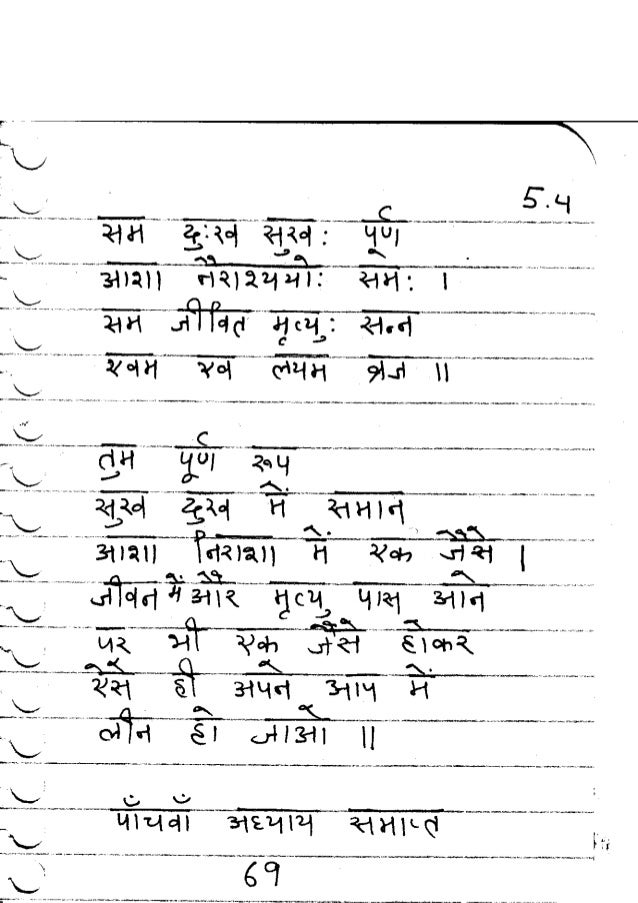 5.4
सम दुःख सुखः पूर्ण
आशा नैराश्ययोः समः ।
सम जीवित मृत्युः सन्न
एवम एव लयम व्रज ॥
तुम पूर्ण रूप
सुख दुख में समान
आशा निराशा में एक जैसे |
जीवन में और मृत्यु पास आने
पर भी एक जैसे होकर
ऐसे ही अपने आप में
लीन हो जाओ ॥
पाँचवाँ अध्याय समाप्त
69